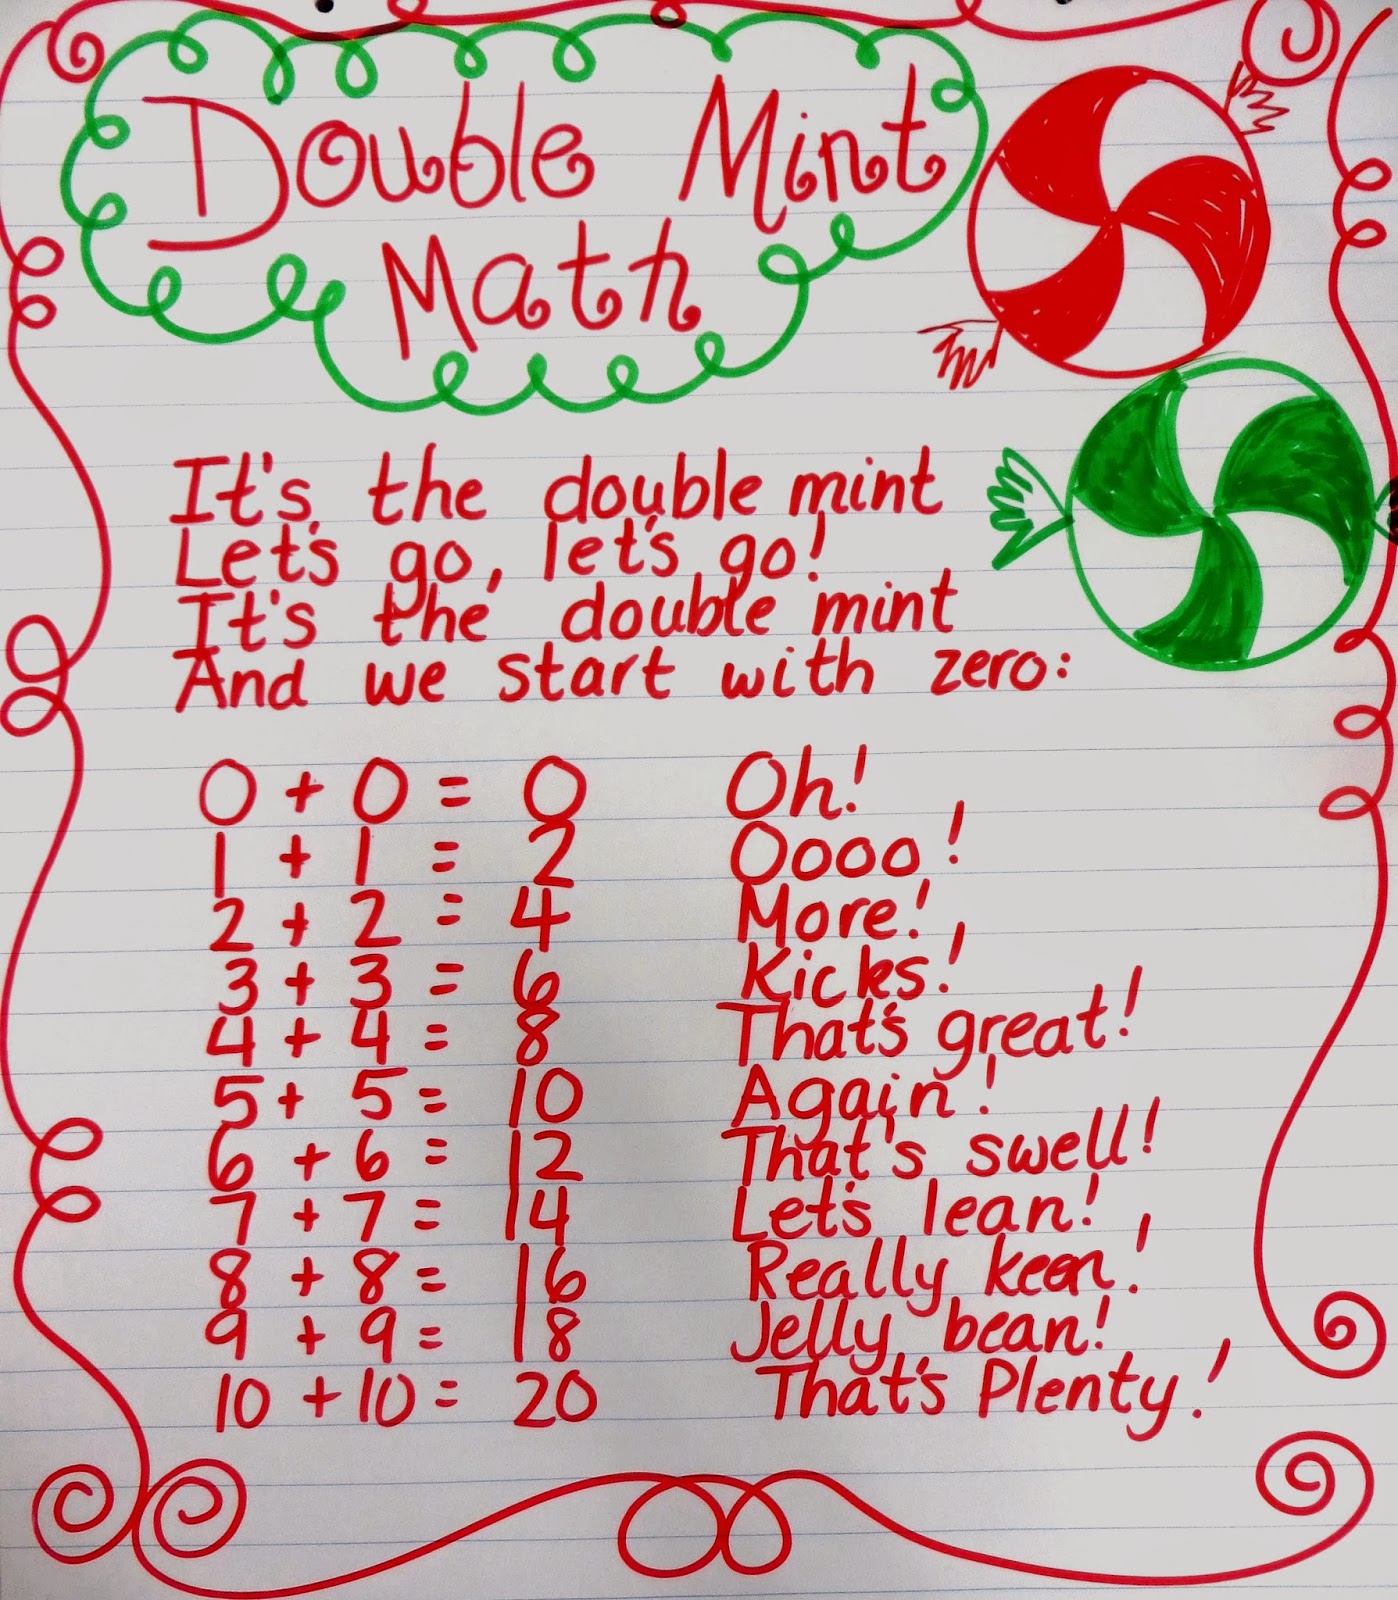 Double Mint
Math
It's the double mint
Let's go, let's go!
It's the double mint
And we start with zero:
0 + 0 = 0 Oh!
1 + 1 = 2 Oooo!
2 + 2 = 4 More!
3 + 3 = 6 Kicks!
4 + 4 = 8 That's great!
5 + 5 = 10 Again!
6 + 6 = 12 That's swell!
7 + 7 = 14 Let's lean!
8 + 8 = 16 Really keen!
9 + 9 = 18 Jelly bean!
10 + 10 = 20 That's Plenty!